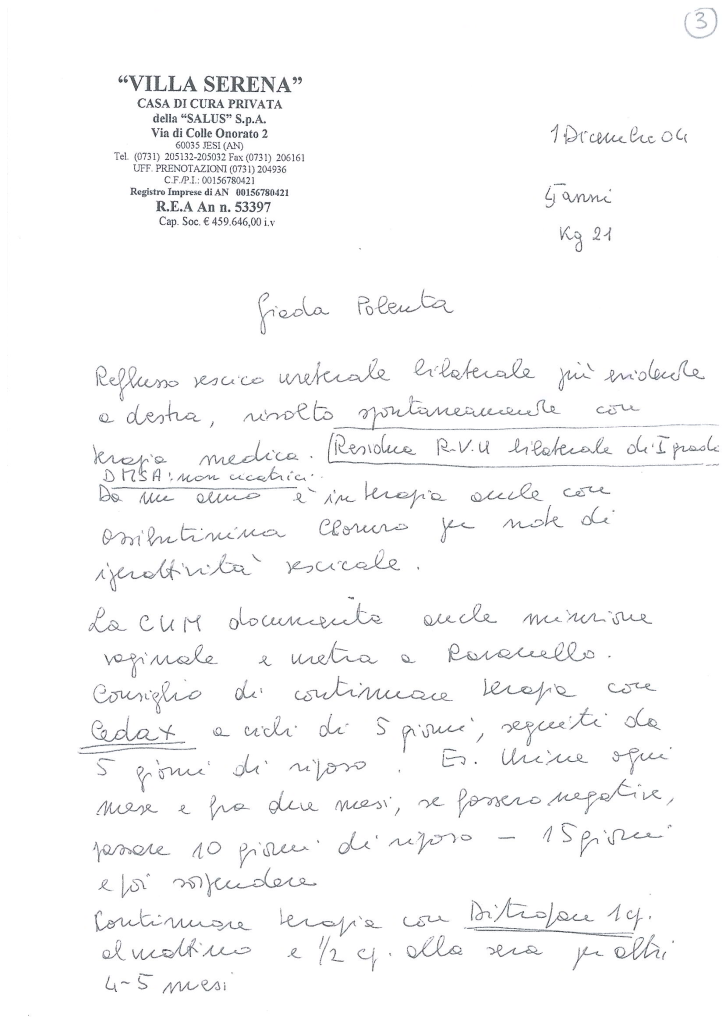 3
"VILLA SERENA"
CASA DI CURA PRIVATA
della "SALUS" S.p.A.
Via di Colle Onorato 2
60035 JESI (AN)
Tel. (0731) 205132-205032 Fax (0731) 206161
UFF. PRENOTAZIONI (0731) 204936
C.F./P.I.: 00156780421
Registro Imprese di AN 00156780421
R.E.A An n. 53397
Cap. Soc. € 459.646,00 i.v
1 Dicembre 04
anni
Kg 21
Giada Polenta
Reflusso vescico ureterale bilaterale più evidente
a destra, risolto spontaneamente con
terapia medica. Residua R.V.U bilaterale di I grado
DMSA: non cicatrici.
Da un anno è in terapia anche con
ossibutinina Cloruro per note di
iperattività vescicale.
La CUM documenta anche minzione
vaginale e uretra a
Consiglio di continuare terapia con
Cedax a cicli di 5 giorni, seguiti da
5 giorni di riposo. Es. Urine ogni
mese e fra due mesi, se fossero negative,
passare 10 giorni di riposo - 15 giorni
e poi sospendere
Continuare terapia con Ditropan 1 cp.
al mattino e 1/2 cp. alla sera per altri
4-5 mesi